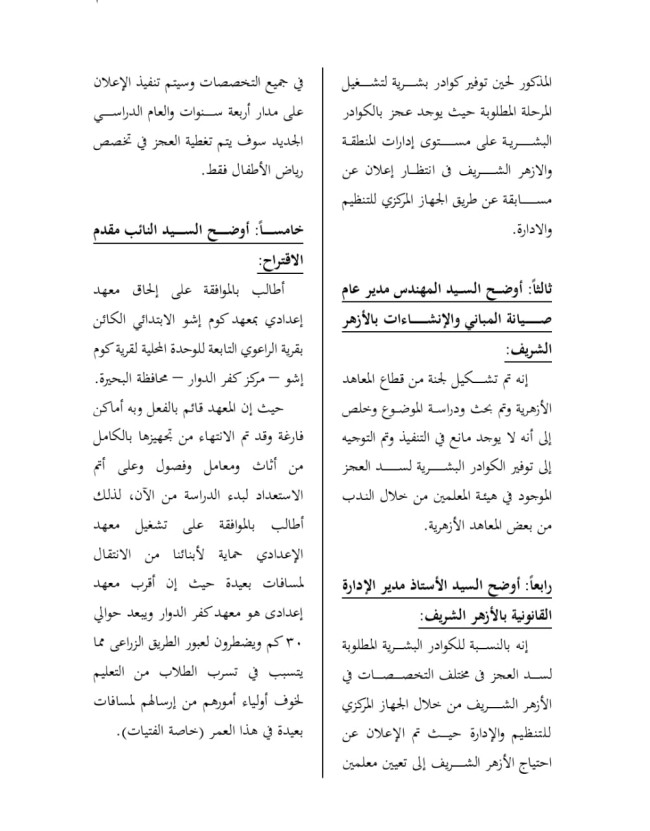 المذكور لحين توفير كوادر بشرية لتشغيل
المرحلة المطلوبة حيث يوجد عجز بالكوادر
البشرية على مستوى إدارات المنطقة
والازهر الشريف فى انتظار إعلان عن
مسابقة عن طريق الجهاز المركزي للتنظيم
والادارة.
ثالثاً: أوضح السيد المهندس مدير عام
صيانة المباني والإنشاءات بالأزهر
الشريف:
إنه تم تشكيل لجنة من قطاع المعاهد
الأزهرية وتم بحث ودراسة الموضوع وخلص
إلى أنه لا يوجد مانع في التنفيذ وتم التوجيه
إلى توفير الكوادر البشرية لسد العجز
الموجود في هيئة المعلمين من خلال الندب
من بعض المعاهد الأزهرية.
رابعاً: أوضح السيد الأستاذ مدير الإدارة
القانونية بالأزهر الشريف:
إنه بالنسبة للكوادر البشرية المطلوبة
لسد العجز فى مختلف التخصصات في
الأزهر الشريف من خلال الجهاز المركزي
للتنظيم والإدارة حيث تم الإعلان عن
احتياج الأزهر الشريف إلى تعيين معلمين
في جميع التخصصات وسيتم تنفيذ الإعلان
على مدار أربعة سنوات والعام الدراسي
الجديد سوف يتم تغطية العجز في تخصص
رياض الأطفال فقط.
خامساً: أوضح السيد النائب مقدم
الاقتراح:
أطالب بالموافقة على إلحاق معهد
إعدادي بمعهد كوم إشو الابتدائي الكائن
بقرية الراعوي التابعة للوحدة المحلية لقرية كوم
إشو – مركز كفر الدوار – محافظة البحيرة.
حيث إن المعهد قائم بالفعل وبه أماكن
فارغة وقد تم الانتهاء من تجهيزها بالكامل
من أثاث ومعامل وفصول وعلى أتم
الاستعداد لبدء الدراسة من الآن، لذلك
أطالب بالموافقة على تشغيل معهد
الإعدادي حماية لأبنائنا من الانتقال
لمسافات بعيدة حيث إن أقرب معهد
إعدادى هو معهد كفر الدوار ويبعد حوالي
٣٠ كم ويضطرون لعبور الطريق الزراعى مما
يتسبب في تسرب الطلاب من التعليم
لخوف أولياء أمورهم من إرسالهم لمسافات
بعيدة في هذا العمر (خاصة الفتيات).